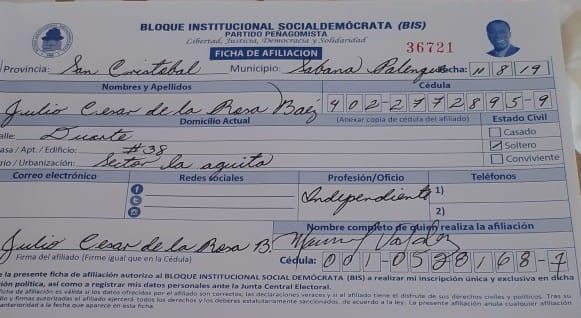 BLOQUE INSTITUCIONAL SOCIALDEMÓCRATA (BIS)
PARTIDO PEÑAGOMISTA
Libertad, Justicia, Democracia y Solidaridad
FICHA DE AFILIACION
36721
Provincia: San Cristobal Municipio: Sabana Palenque Fecha: 11 8 19
Nombres y Apellidos Cédula
Julio Cesar de la Rosa Baéz 402-2772895-9
Domicilio Actual (Anexar copia de cédula del afiliado) Estado Civil
alle: Duarte Casado
asa / Apt. / Edificio: #38 Soltero
rio / Urbanización: Sector la aguita Conviviente
Correo electrónico Redes sociales Profesión/Oficio Teléfonos
Independiente 1)
2)
Nombre completo de quien realiza la afiliación
Julio Cesar de la Rosa B.
Firma del afiliado (Firme igual que en la Cédula) Cédula: 001-0528168-7
e la presente ficha de afiliación autorizo al BLOQUE INSTITUCIONAL SOCIAL DEMÓCRATA (BIS) a realizar mi inscripción única y exclusiva en dicha
ión política, así como a registrar mis datos personales ante la Junta Central Electoral.
ficha de afiliación es válida si los datos ofrecidos por el afiliado son correctos, las declaraciones veraces y si el afiliado tiene el disfrute de sus derechos civiles y políticos. Tras su
do y firmas autorizadas el afiliado ejercerá todos los derechos y los deberes estatutariamente sancionados, de acuerdo a la ley. La presente afiliación anula cualquier afiliación
anterioridad a la fecha que aparece en esta ficha.